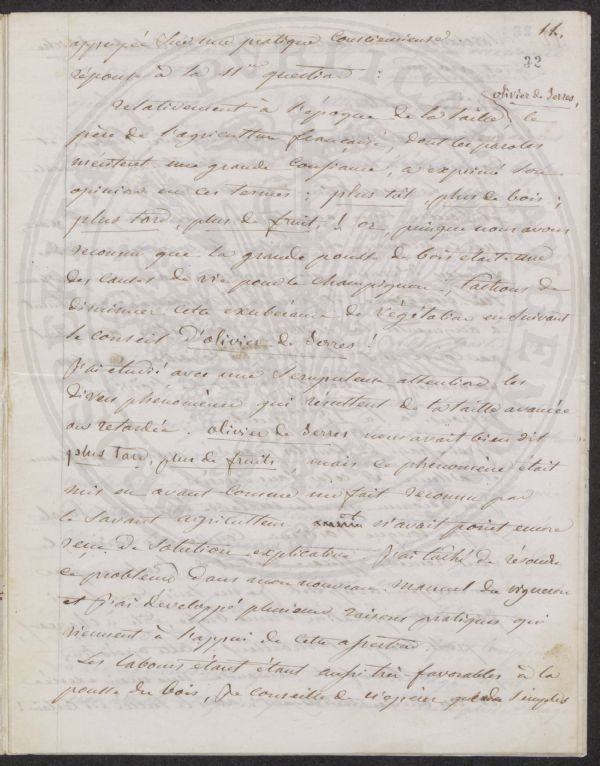 11.
32
appuyée sur une pratique consciencieuse.
réponse à la 11me question :
olivier de Serres,
relativement à l'époque de la taille, le
père de l'agriculture française, dont les paroles
méritent une grande confiance, a exprimé son
opinion en ces termes : plus tôt, plus de bois ;
plus tard, plus de fruits ! or, puisque nous avons
reconnu que la grande pousse de bois était une
des causes de vie pour le champignon, tâchons de
diminuer cette exubérance de végétation en suivant
le conseil d'olivier de Serres !
J'ai étudié avec une scrupuleuse attention les
divers phénomènes qui résultent de la taille avancée
ou retardée. olivier de Serres nous avait bien dit
plus tard, plus de fruits, mais ce phénomène était
mis en avant comme un fait reconnu par
le savant agriculteur et n'avait point encore
reçu de solution explicative. J'ai tâché de résoudre
ce problème dans mon nouveau manuel du vigneron
et j'ai développé plusieurs raisons pratiques qui
viennent à l'appui de cette assertion.
Les labours étant étant aussi très favorables à la
pousse du bois, je conseille de n'opérer que de simples